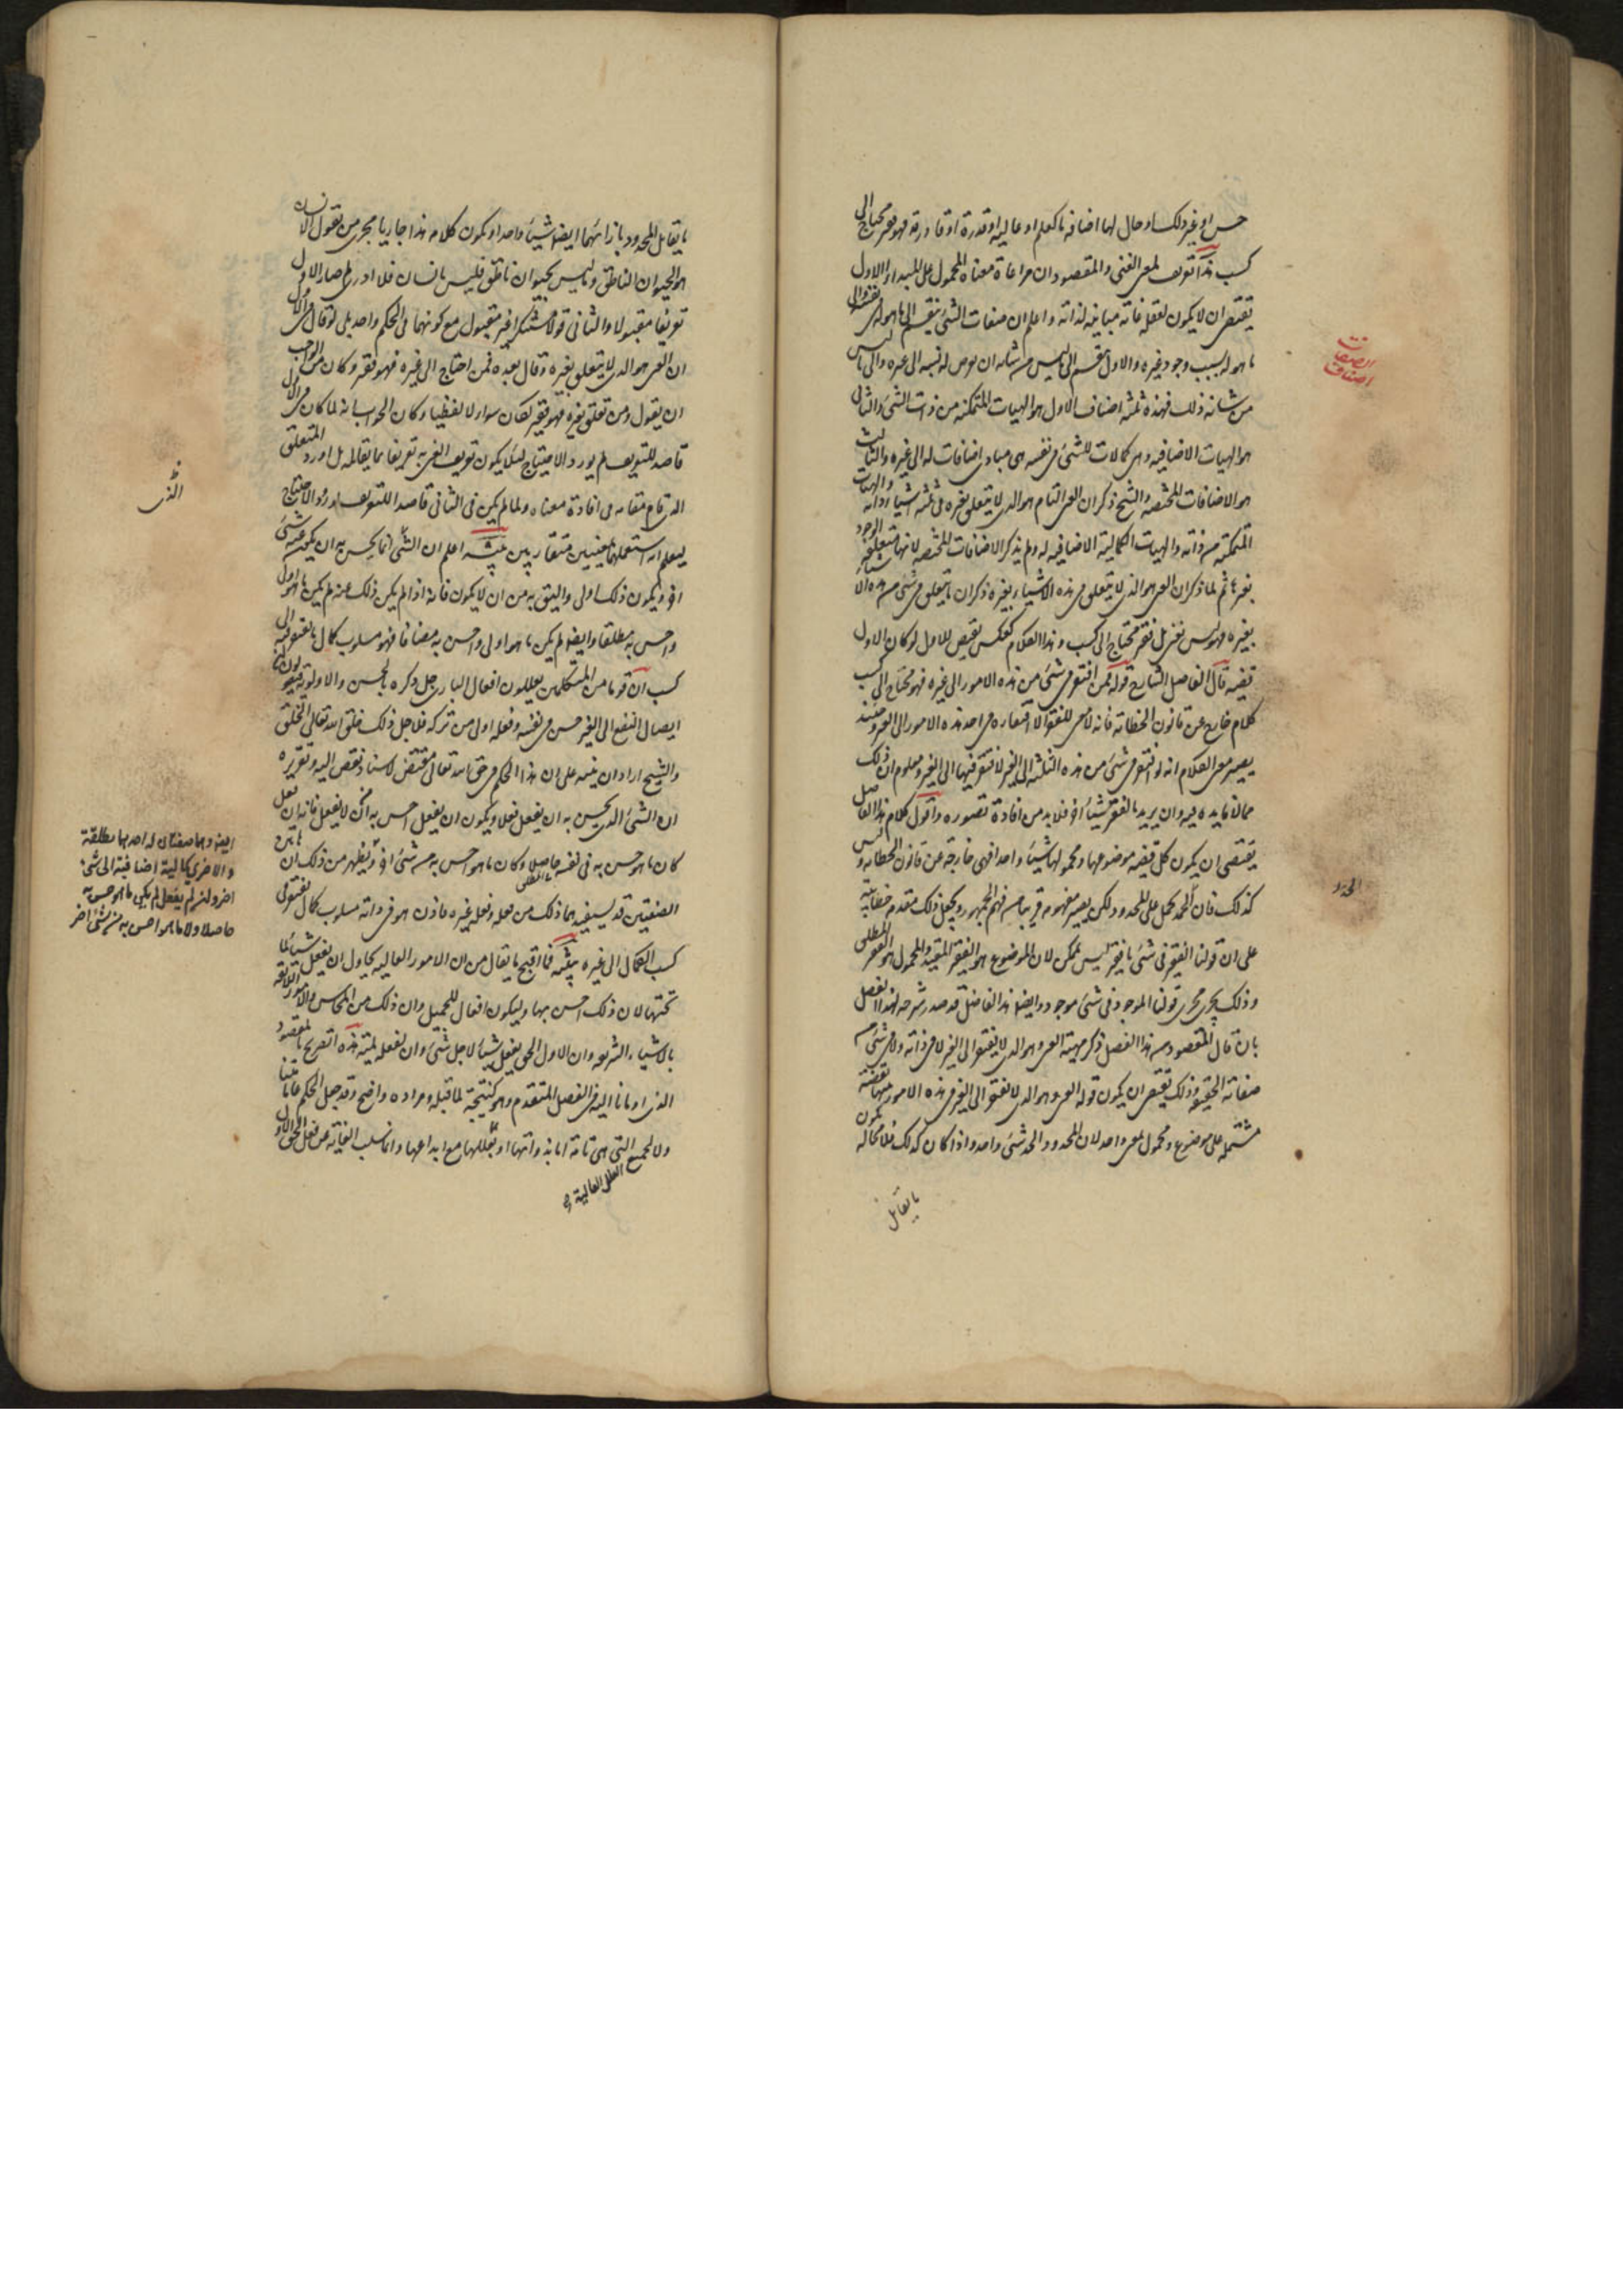 حسن او غير ذلك او حال لها اضافه ما كعلم او عالمية او قدرة او قادرية فهو فقير محتاج الى
كسب هذا تعريف لمعنى الغنى والمقصود ان مراعاة معناه المحمول على المبدء الاول
يقتضى ان لا يكون لفعله غاية مباينه لذاته واعلم ان صفات الشئ ينقسم الى ما هو له فى نفسه والى
ما هو له بسبب وجود غيره والاول ينقسم الى ما ليس من شانه ان يعرض له نسبه الى غيره والى ما
من شانه ذلك فهذه ثلثة اصناف الاول هو الهيات المتمكنه من ذات الشئ والثانى
هو الهيات الاضافيه وهى كمالات للشئ فى نفسه هى مبادى اضافات له الى غيره والثالث
هو الاضافات المحضه والشيخ ذكر ان الغنى التام هو الذى لا يتعلق بغيره فى ثلثه اشياء ذاته والهيات
المتمكنه من ذاته والهيات الكماليه الاضافيه له ولم يذكر الاضافات المحضه لانها متعلقه الوجود
بغيرها ثم لما ذكر ان الغنى هو الذى لا يتعلق فى هذه الاشياء بغيره ذكر ان ما يتعلق فى شئ من هذه الاشياء
بغيره فهو ليس بغنى بل فقير محتاج الى كسب وهذا الكلام كعكس نقيض للاول لو كان الاول
قضيه قال الفاضل الشارح قوله فمن افتقر فى شئ من هذه الامور الى غيره فهو محتاج الى كسب
كلام خارج عن قانون الخطابه فانه لا معنى للفقر الا افتقاره فى احد هذه الامور الى الغير وحينئذ
يصير معنى الكلام انه لو افتقر فى شئ من هذه الثلثة الى الغير لافتقر فيها الى الغير ومعلوم ان ذلك
مما لا فايده فيه وان يريد بالفقر شيئا اخر فلا بد من افادة تصوره واقول كلام هذا الفاضل
يقتضى ان يكون كل قضيه موضوعها ومحمولها شيئا واحدا فهى خارجة عن قانون الخطابه وليس
كذلك فان الحد يحمل على المحدود لكى يصير مفهومه قريبا من فهم الجمهور ويجعل ذلك مقدمه خطابيه
على ان قولنا الفقير فى شئ ما فقير ليس بممكن لان الموضوع هو الفقير المقيد والمحمول هو الفقير المطلق
وذلك يجرى مجرى قولنا الموجود فى شئ موجود وايضا هذا الفاضل قد صدر شرحه لهذا الفصل
بان قال المقصود من هذا الفصل ذكر مهية الغنى وهو الذى لا يفتقر الى الغير لا فى ذاته ولا فى شئ من
صفاته الحقيقيه وذلك يقتضى ان يكون قوله الغنى هو الذى لا يفتقر الى الغير فى هذه الامور قضية
مشتمله على موضوع ومحمول لمعنى واحد لان المحدود والحد شئ واحد واذا كان كذلك فلا محاله يكون
ما يقابل
الصفات
اصناف
الحدود
ما يقابل المحدود بازائهما ايضا شيئا واحدا ويكون كلامه هذا جاريا مجرى من يقول الانسان
هو الحيوان الناطق وما ليس بحيوان ناطق فليس بانسان فلا ادرى لم صار الاول
تعريفا مقبولا والثانى قولا مستنكرا غير مقبول مع كونهما فى الحكم واحد بلى لو قال فى الاول
ان الغنى هو الذى لا يتعلق بغيره وقال بعده فمن احتاج الى غيره فهو فقير وكان من الواجب
ان يقول ومن تعلق بغيره فهو فقير لكان سوالا لفظيا وكان الجواب انه لما كان فى الاول
قاصدا للتعريف لم يورد الاحتياج لئلا يكون تعريف الغنى به تعريفا بما يقابله بل اورد المتعلق
الذى قام مقامه فى افادة معناه ولما لم يكن فى الثانى قاصدا للتعريف اورد الاحتياج
ليعلم انه استعملهما بمعنيين متقاربين تنبيه اعلم ان الشئ انما يحسن به ان يكون عنه شئ
اخر ويكون ذلك اولى واليق به من ان لا يكون فانه اذا لم يكن ذلك عنه لم يكن ما هو اولى
واحسن به مطلقا وايضا لم يكن ما هو اولى واحسن به مضافا فهو مسلوب كمال ما يفتقر فيه الى
كسب ان قوما من المتكلمين يعللون افعال البارى جل ذكره بالحسن والاولوية فيقولون ان
ايصال النفع الى الغير حسن فى نفسه وفعله اولى من تركه فلاجل ذلك خلق الله تعالى الخلق
والشيخ اراد ان ينبه على ان هذا الحكم فى حق الله تعالى مقتض لاسناد نقص اليه وتقريره
ان الشئ الذى يحسن به ان يفعل فعلا ويكون ان يفعل احسن به من ان لا يفعل فانه ان فعل
كان ما هو حسن به فى نفسه حاصلا وكان ما هو احسن به من شئ اخر ويظهر من ذلك ان
الصفتين قد يستفيدهما ذلك من فعله وفعله غيره فاذن هو فى ذاته مسلوب كمال مفتقر فى
كسب الكمال الى غيره تنبيه فما اقبح ما يقال من ان الامور العاليه يحاول ان يفعل شيئا لما
تحتها لان ذلك احسن بها وليكون فعال للجميل وان ذلك من المحاسن والامور اللائقه
بالاشياء الشريفه وان الاول الحق يفعل شيئا لاجل شئ وان لفعله لمية هذه تصريح بالمقصود
الذى اومانا اليه فى الفصل المتقدم وهو كنتيجة لما قبله ومراده واضح وقد جعل الحكم عاما
ولا لجميع التى هى تامة اما بذواتها او بعللها مع ابداعها وانما سلب الغاية عن فعل الحق الاول
العلل العالية
الذى
ايضا وهما صفتان له احدهما مطلقة
والاخرى كمالية اضافية الى شئ
اخر ولئن لم يفعل لم يكن ما هو حسن به
حاصلا ولا ما هو احسن به من شئ اخر